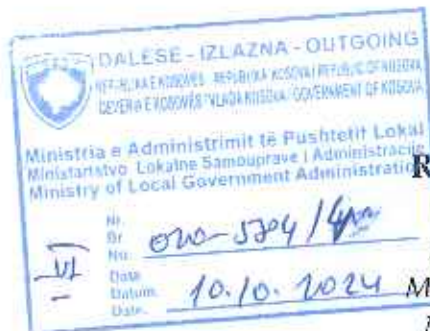 DALËSE - IZLAZNA - OUTGOING
REPUBLIKA E KOSOVËS REPUBLIKA KOSOVA / REPUBLIC OF KOSOVA
QEVERIA E KOSOVËS VLADA KOSOVA / GOVERNMENT OF KOSOVA
Ministria e Administrimit të Pushtetit Lokal
Ministarstvo Lokalne Samouprave i Administracije
Ministry of Local Government Administration
R
Nr.
Br
No.
VI
Data
Datum
Date.
10.10.2024
M